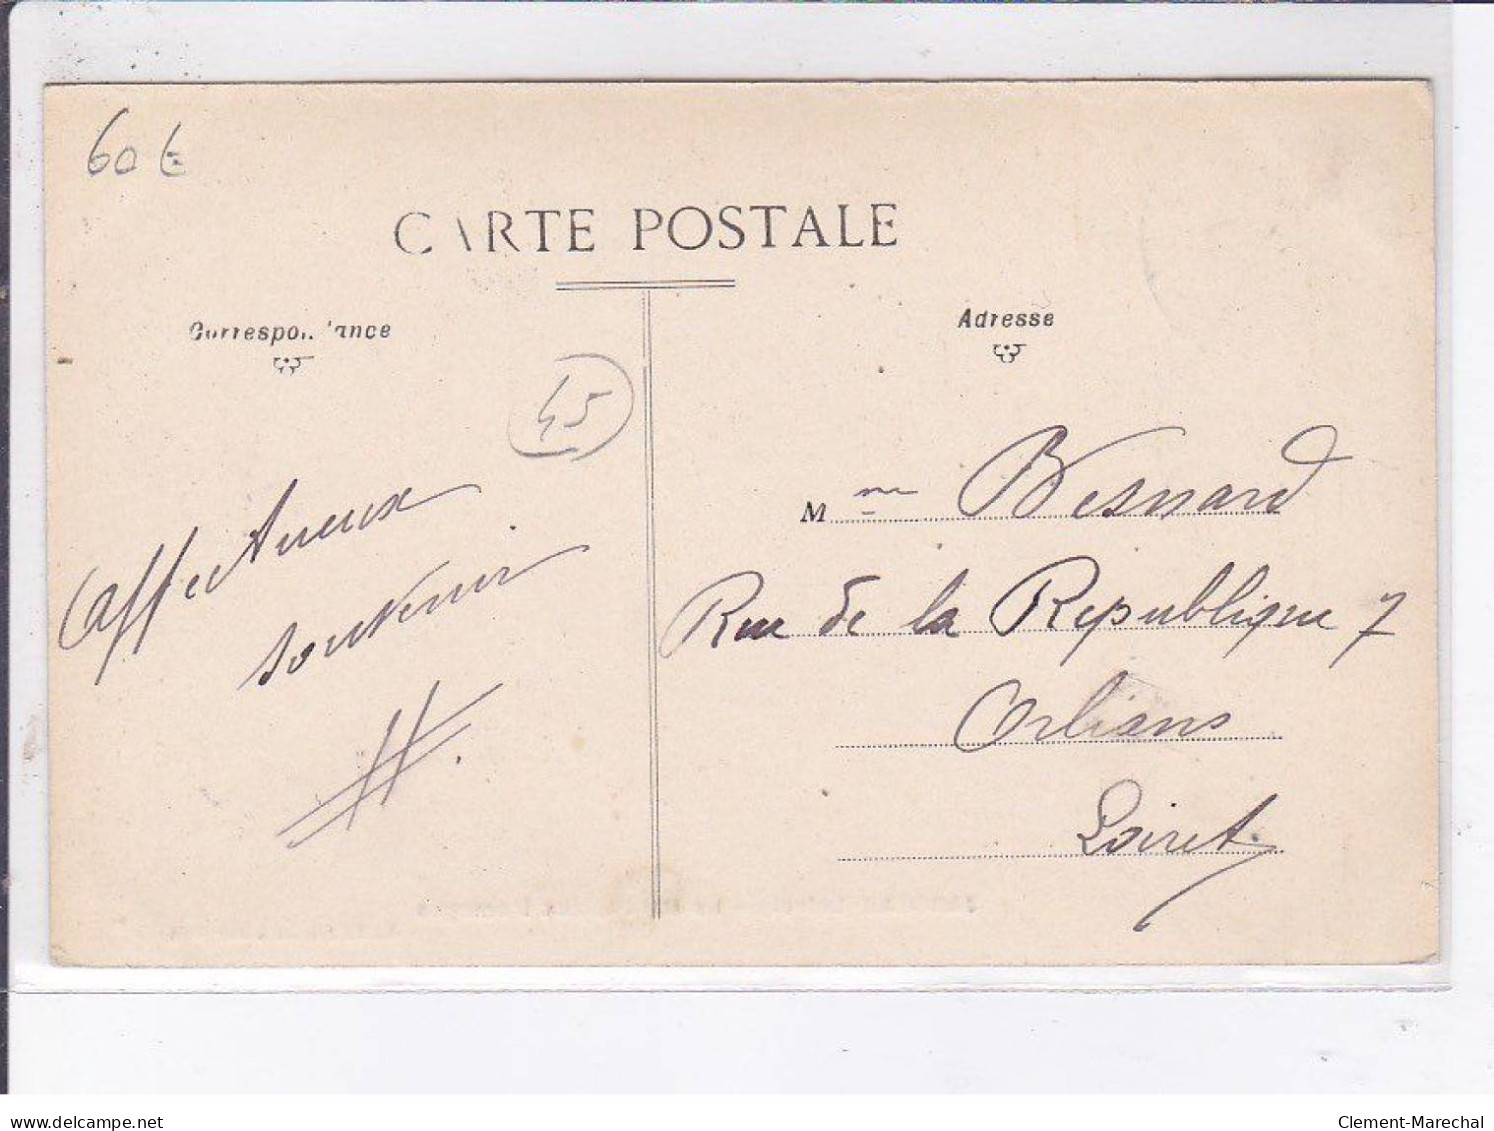 60 €
CARTE POSTALE
Correspondance
Adresse
45
Affectueux
souvenir
Mme Besnard
Rue de la République 7
Orléans
Loiret
delcampe.net
Clement-Marechal